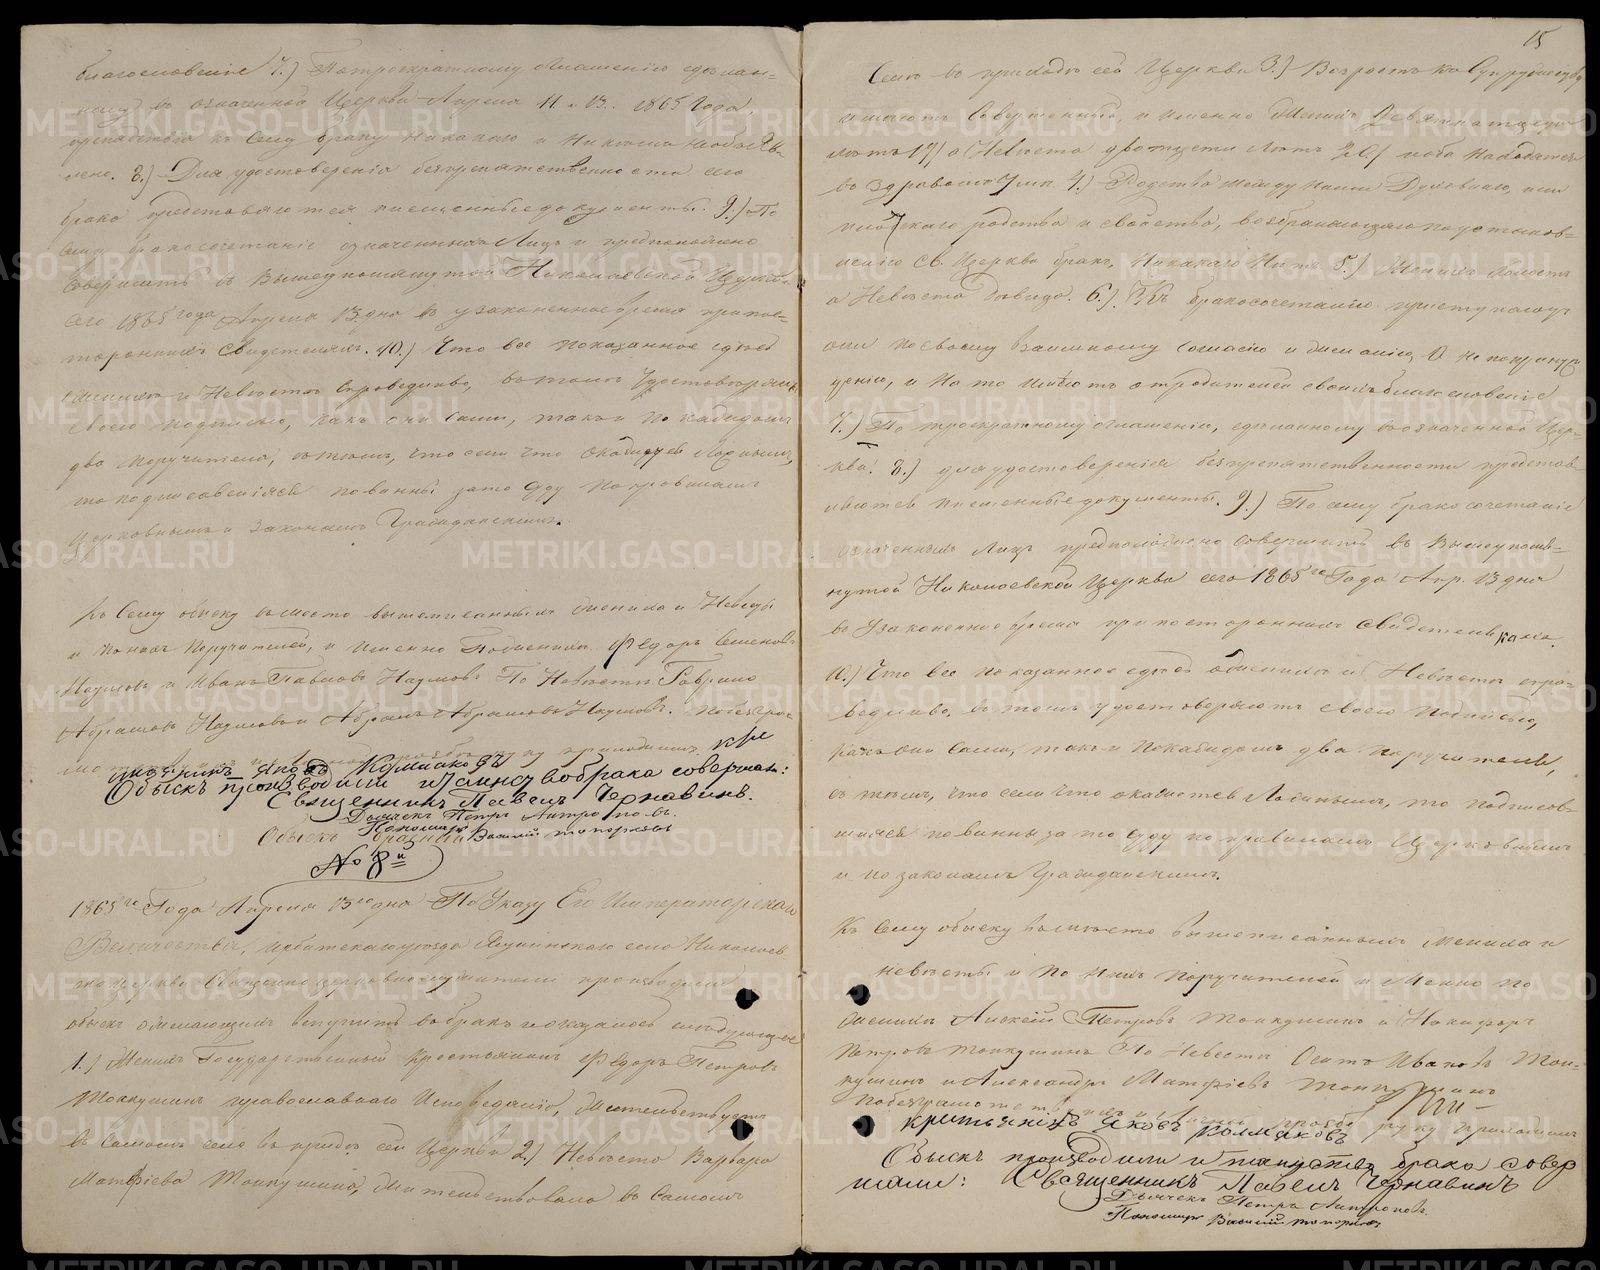 благословение 7.) Потроекратному оглашению сделан-
ному въ означенной Церкви Апреля 11 и 13. 1865 Года,
препядствiя къ Сему браку Никакого и Никемъ необъяв-
лено. 8.) Для удостоверенiя безпрепятственности сего
брака представляются писменные документы. 9.) По
сему бракосочетанiе означенныхъ Лицъ и предположено
совершить въ Вышеупомянутой Николаевской Церкви
сего 1865 года Апреля 13 дня въ узаконенное время припос-
тороннихъ Свидетеляхъ. 10.) Что все показанное сдесь
о женихе и Невесте Справедливо, въ томъ Удостоверяютъ
своею подписью, какъ они сами, такъ и по каждомъ
два поручителя, съ темъ, что если что окажется Ложнымъ,
то подписавшiяся повинны зато суду по правиламъ
Церковнымъ и законамъ Гражданскимъ.
Къ Сему обыску вместо вышеписанныхъ жениха и Невесты
и по нихъ Поручителей, и Именно По женихе Федоръ Семеновъ
Наумовъ и Иванъ Павловъ Наумовъ По Невесте Гаврило
Абрамовъ Наумовъ и Абрамъ Абрамовъ Наумовъ.
Яковъ Колмаковъ
Обыскъ производили и Таинство брака совершали:
Священникъ Павелъ Чернавинъ.
Дьячекъ Петръ Антроповъ.
Пономарь Василiй Топорковъ
Обыскъ брачный
№ 8й
1865го Года Апреля 13го дня По Указу Его Императорскаго
Величества, Ирбитскаго уезда села Николаев-
ской Церкви Священно церковнослужители производили
обыскъ о желающихъ вступить въ бракъ и оказалось следующее
1.) Женихъ Государственный Крестьянинъ Федоръ Петровъ
Тонкушинъ православнаго Исповеданiя, Жительствуетъ
въ самомъ селе въ приходе сей Церкви 2.) Невеста Варвара
Матфiева Тонкушина, Жительствовала въ Самомъ
15
Селе въ приходе сей Церкви 3.) Возрастъ къ Супружеству
имеютъ Совершенный, и именно Женихъ Девятнатцати
летъ 19/ а Невеста дватцети летъ 20/ и оба находятся
въ здравомъ Уме. 4.) Родства между ними Духовнаго, или
плотскаго родства и свойства, возбраняющаго по установ-
ленiю Св. Церкви бракъ, Никакого Нетъ 5.) Женихъ холостъ
а Невеста девица. 6.) Къ бракосочетанiю приступаютъ
они по своему Взаимному согласiю и желанiю, а не по принуж-
денiю, и на то имеютъ отъ родителей своихъ благословенiе
7.) По троекратному оглашенiю, сделанному въ означенной Цер-
кви. 8.) для удостоверенiя безпрепятственности представ-
ляются писменные документы. 9.) По сему бракосочетанiе
означенныхъ Лицъ предположено совершить въ Вышеупомя-
нутой Николаевской Церкви сего 1865го Года Апр. 13 дня
въ Узаконенное время при постороннихъ Свидетеляхъ.
10.) Что все показанное сдесь о женихе и Невесте спра-
ведливо, въ томъ удостоверяютъ своею подписью,
какъ они Сами, такъ и по каждомъ два поручителя,
съ темъ, что если что окажется Ложнымъ, то подписав-
шiяся повинны за то суду по правиламъ Церковнымъ
и по законамъ Гражданскимъ.
Къ Сему обыску вместо вышеписанныхъ жениха и
невесты и по нихъ Поручителей и Именно по
женихе Алексей Петровъ Тонкушинъ и Никифоръ
Петровъ Тонкушинъ По Невесте Осипъ Ивановъ Тон-
кушинъ и Александръ Матфiевъ Тонкушинъ
крестьянинъ Яковъ Колмаковъ
Обыскъ производили и таинство брака совер
шали: Священникъ Павелъ Чернавинъ
Дьячекъ Петръ Антроповъ.
Пономарь Василiй Топорковъ
METRIKI.GASO-URAL.RU